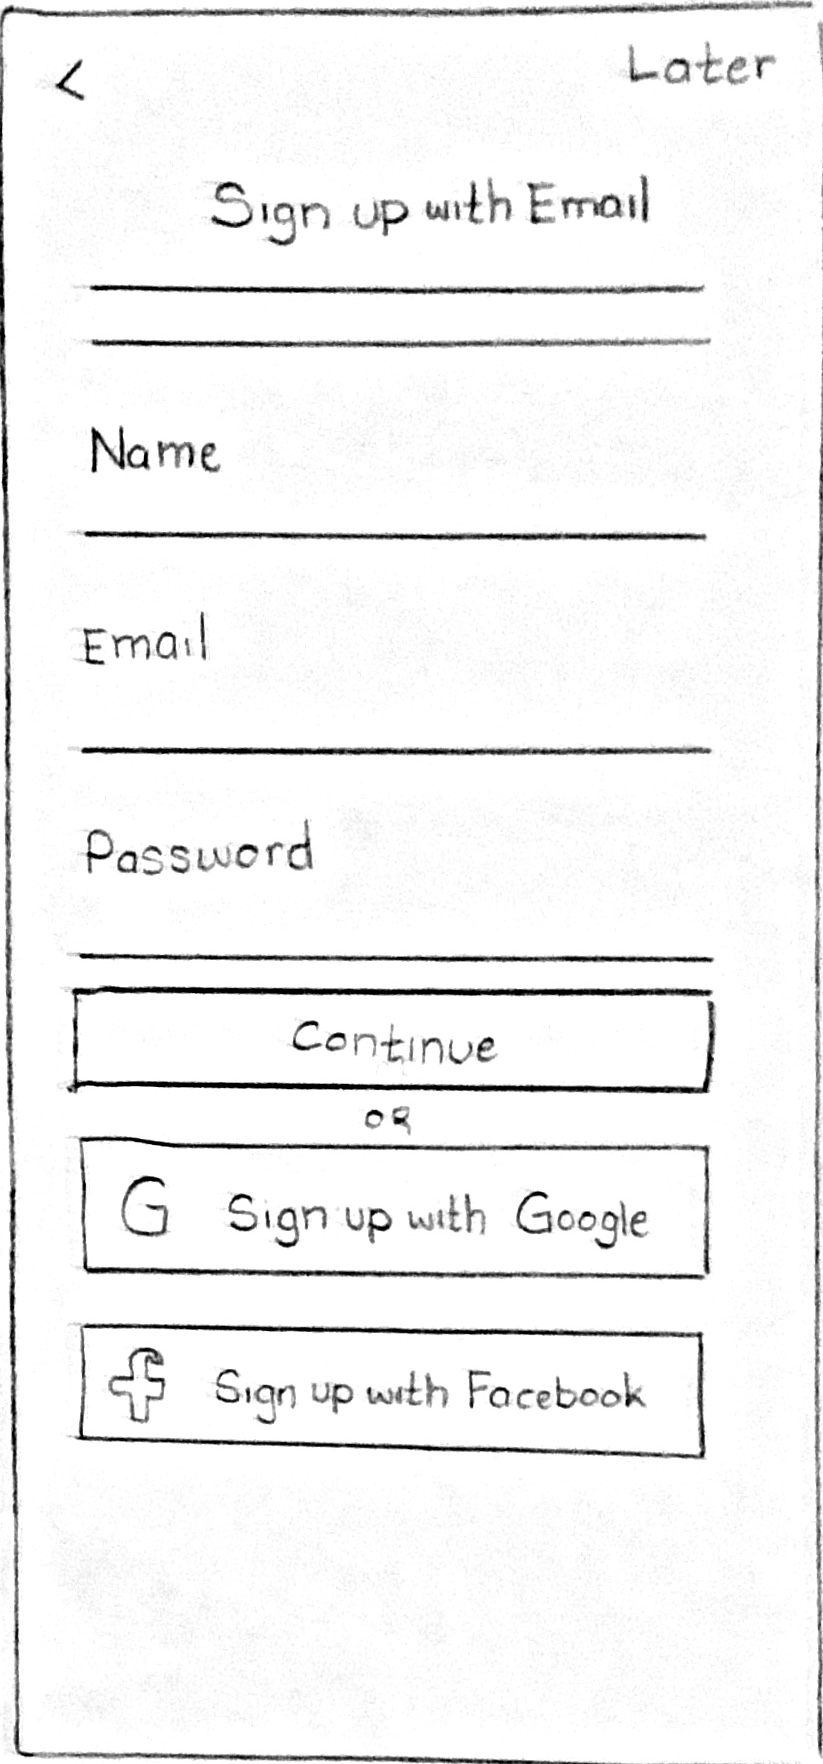 <
Later
Sign up with Email
Name
Email
Password
Continue
OR
G Sign up with Google
f Sign up with Facebook